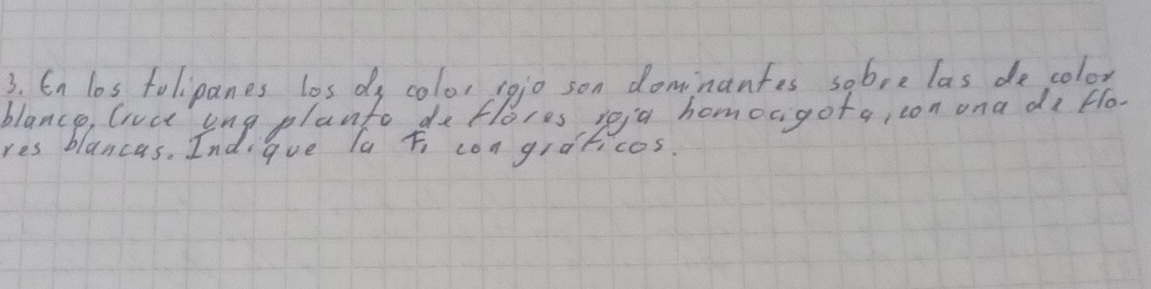 3. En los tulipanes los de color rojo son dominantes sobre las de color
blanco, Cruce una planta de flores roja homocigota, con una de flo-
res blancas. Indique la F1 con gráficos.